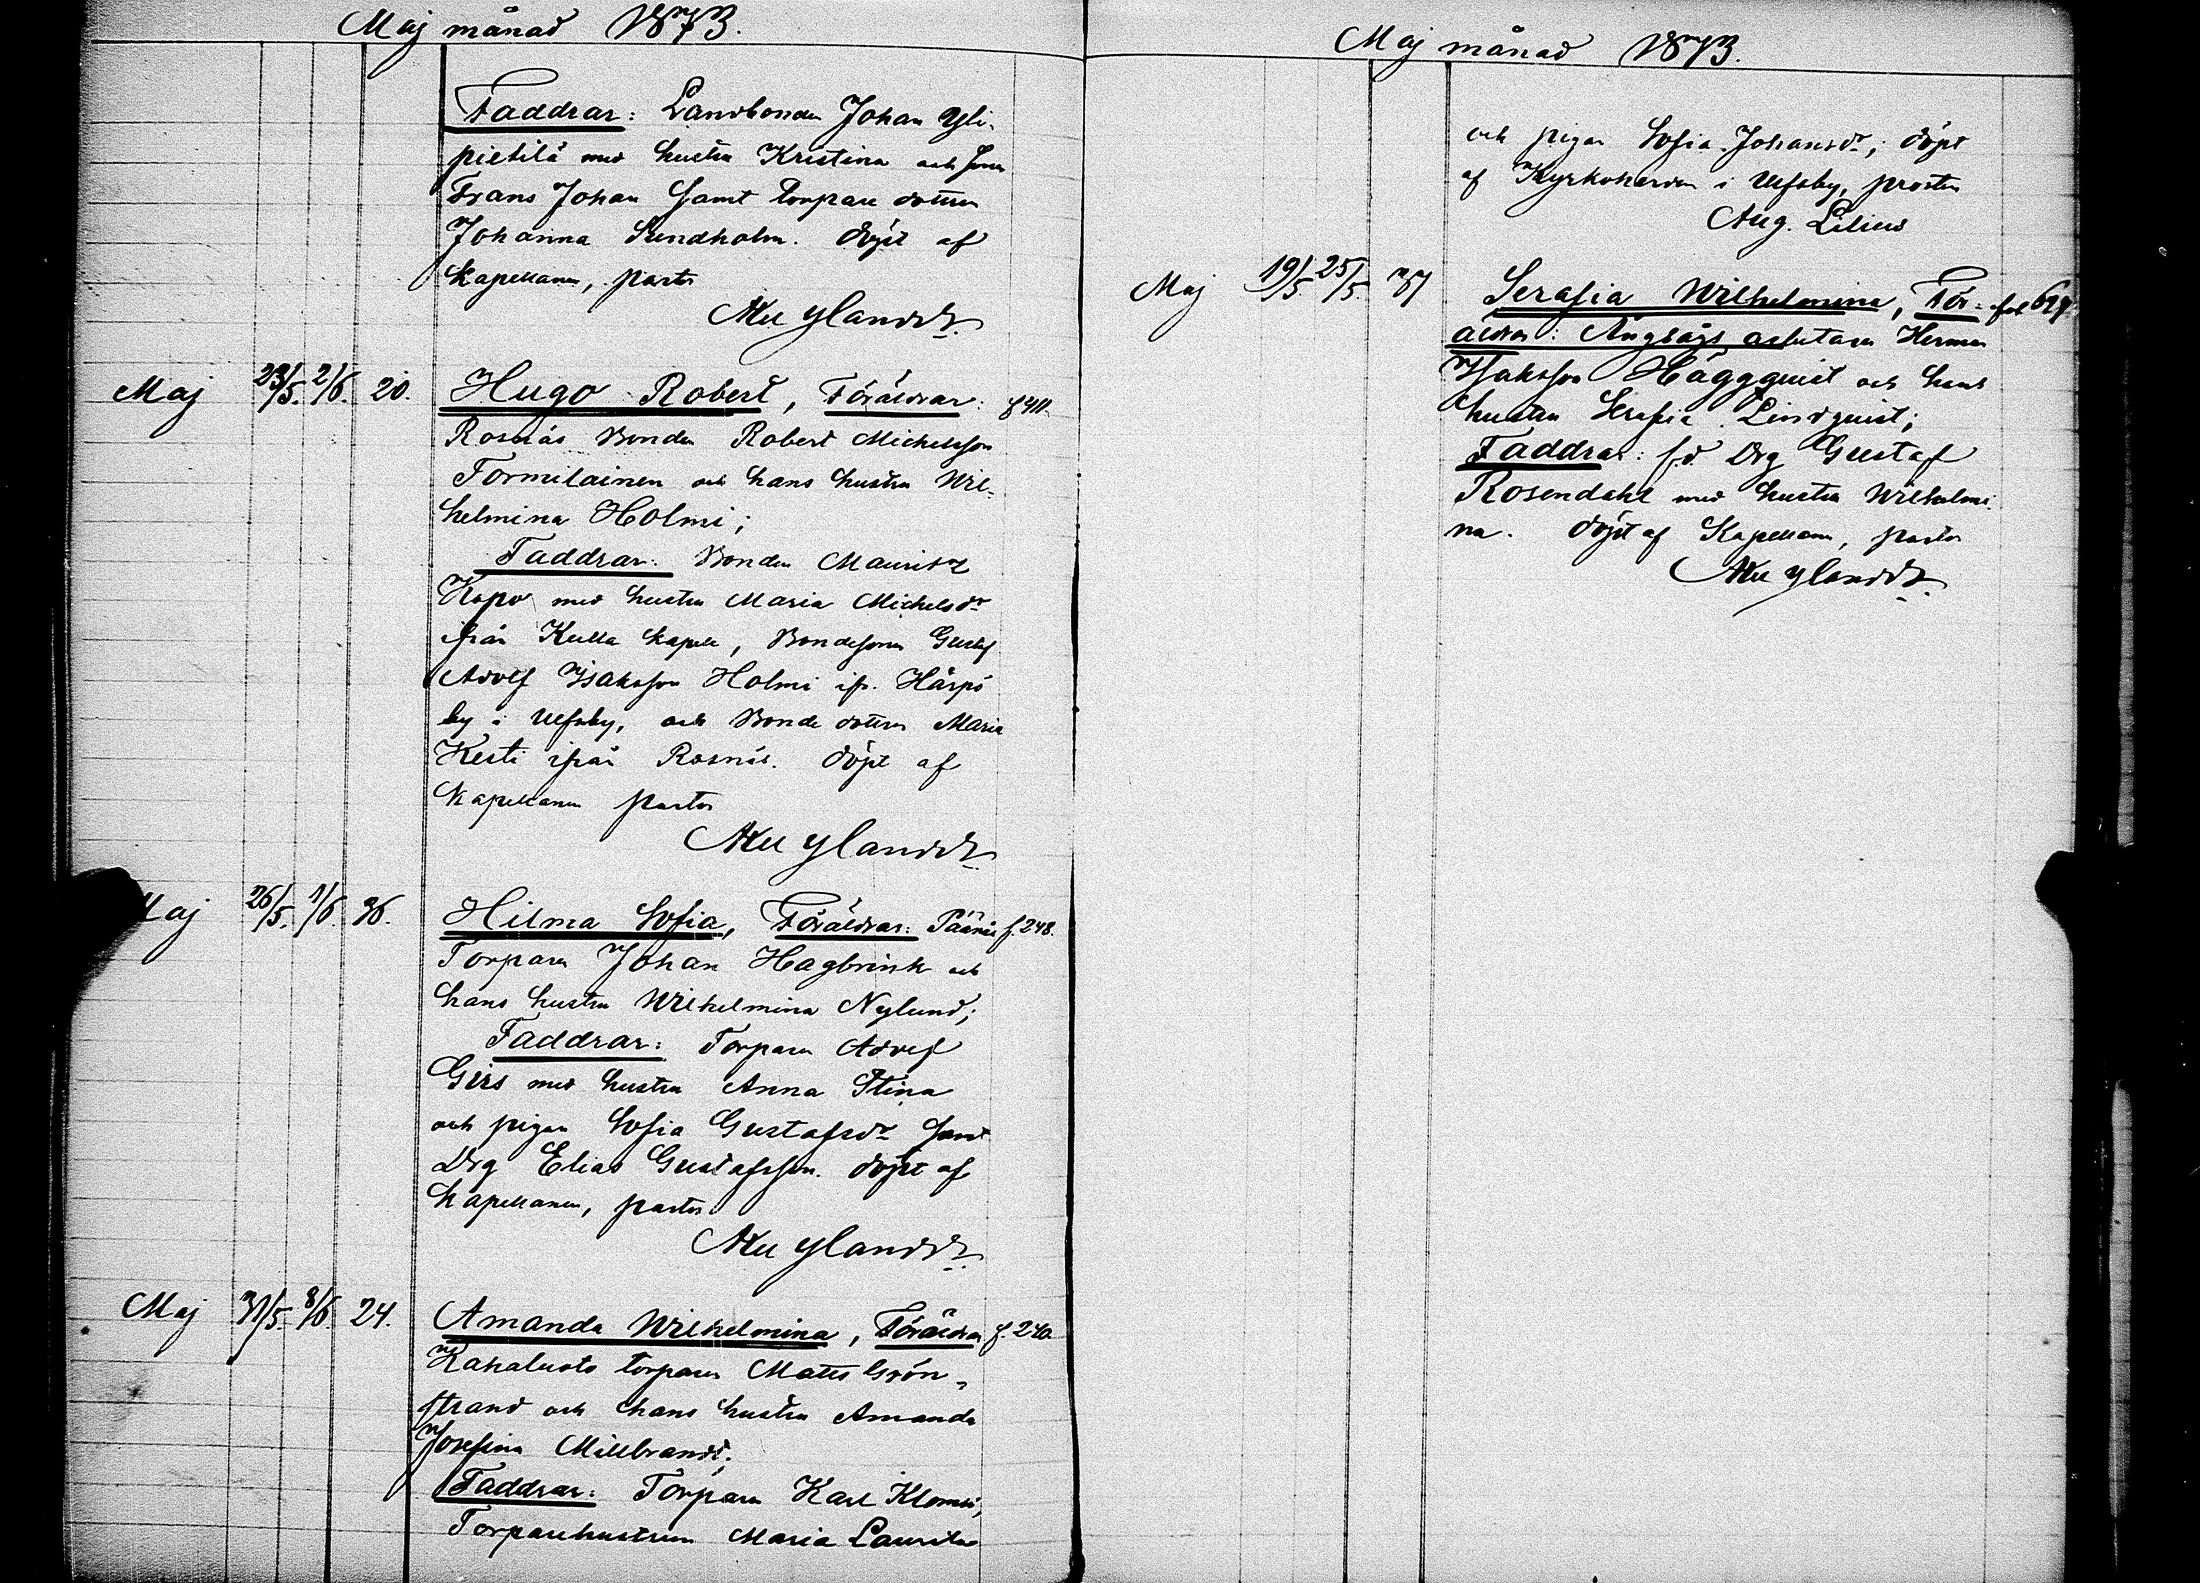 Maj månad 1873.
Faddrar: Landbonden Johan Yli-
pietilä med hustru Kristina och sonen
Frans Johan samt torpare dottren
Johanna Sundholm. döpt af
kapellanen, pastor
Aku Ylandet.
Maj 23/5. 2/6. 20. Hugo Robert, Föräldrar: f 411.
Rosnäs Bonden Robert Michelsson
Tormilainen och hans hustru Wil-
helmina Holmi;
Faddrar: Bonden Mauritz
Kopo med hustru Maria Michelsdr
ifrån Kulla kapell, Bondesonen Gustaf
Adolf Isaksson Holmi ifr. Härpö
by i Ulfsby, och Bonde dottren Maria
Kesti ifrån Rosnäs. döpt af
kapellanen pastor
Aku Ylandet.
Maj 26/5. 1/6. 36. Hilma Sofia, Föräldrar: Päärnäs f. 248.
Torparen Johan Hagbrink och
hans hustru Wilhelmina Nylund;
Faddrar: Torparen Adolf
Girs med hustru Anna Stina
och pigan Sofia Gustafsdr samt
Drg Elias Gustafsson. döpt af
kapellanen, pastor
Aku Ylandet.
Maj 31/5. 8/6. 24. Amanda Wilhelmina, Föräldrar f. 240.
Kahaluoto torparen Matts Grön-
strand och hans hustru Amanda
Josefina Millbrandt;
Faddrar: Torparen Karl Klomsi,
Torparehustrun Maria Laurila
Maj månad 1873.
och pigan Sofia Johansdr; döpt
af Kyrkoherden i Ulfsby, prosten
Aug. Lilius
Maj 19/5 25/5. 31 Serafia Wilhelmina, För- fol 627.
äldrar: Ångsågs arbetaren Herman
Isaksson Häggquist och hans
hustru Serafia Lindquist;
Faddrar: f.d. Drg Gustaf
Rosendahl med hustru Wilhelmi-
na. döpt af Kapellanen, pastor
Aku Ylandet.